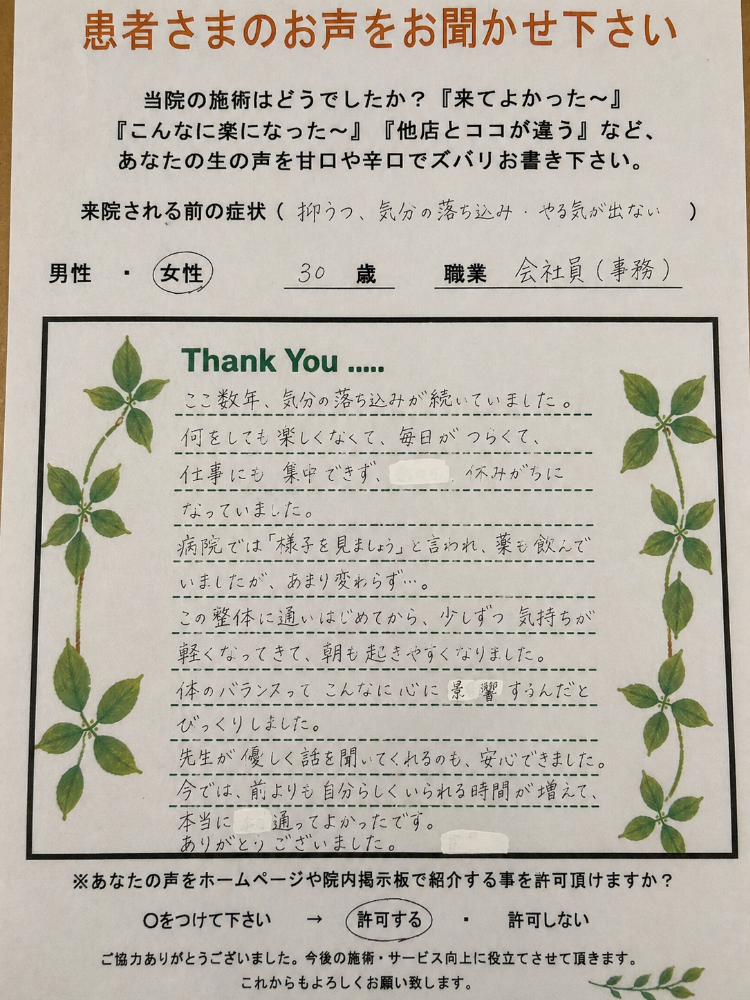 患者さまのお声をお聞かせ下さい
当院の施術はどうでしたか？『来てよかった〜』
『こんなに楽になった〜』『他店とココが違う』など、
あなたの生の声を甘口や辛口でズバリお書き下さい。
来院される前の症状（ 抑うつ、気分の落ち込み・やる気が出ない ）
男性 ・ 女性 30 歳 職業 会社員（事務）
Thank You .....
ここ数年、気分の落ち込みが続いていました。
何をしても楽しくなくて、毎日がつらくて、
仕事にも集中できず、 休みがちに
なっていました。
病院では「様子を見ましょう」と言われ、薬も飲んで
いましたが、あまり変わらず…。
この整体に通いはじめてから、少しずつ気持ちが
軽くなってきて、朝も起きやすくなりました。
体のバランスって こんなに心に 景響 するんだと
びっくりしました。
先生が優しく話を聞いてくれるのも、安心できました。
今では、前よりも自分らしくいられる時間が増えて、
本当に 通ってよかったです。
ありがとうございました。
※あなたの声をホームページや院内掲示板で紹介する事を許可頂けますか？
〇をつけて下さい → 許可する ・ 許可しない
ご協力ありがとうございました。今後の施術・サービス向上に役立てさせて頂きます。
これからもよろしくお願い致します。